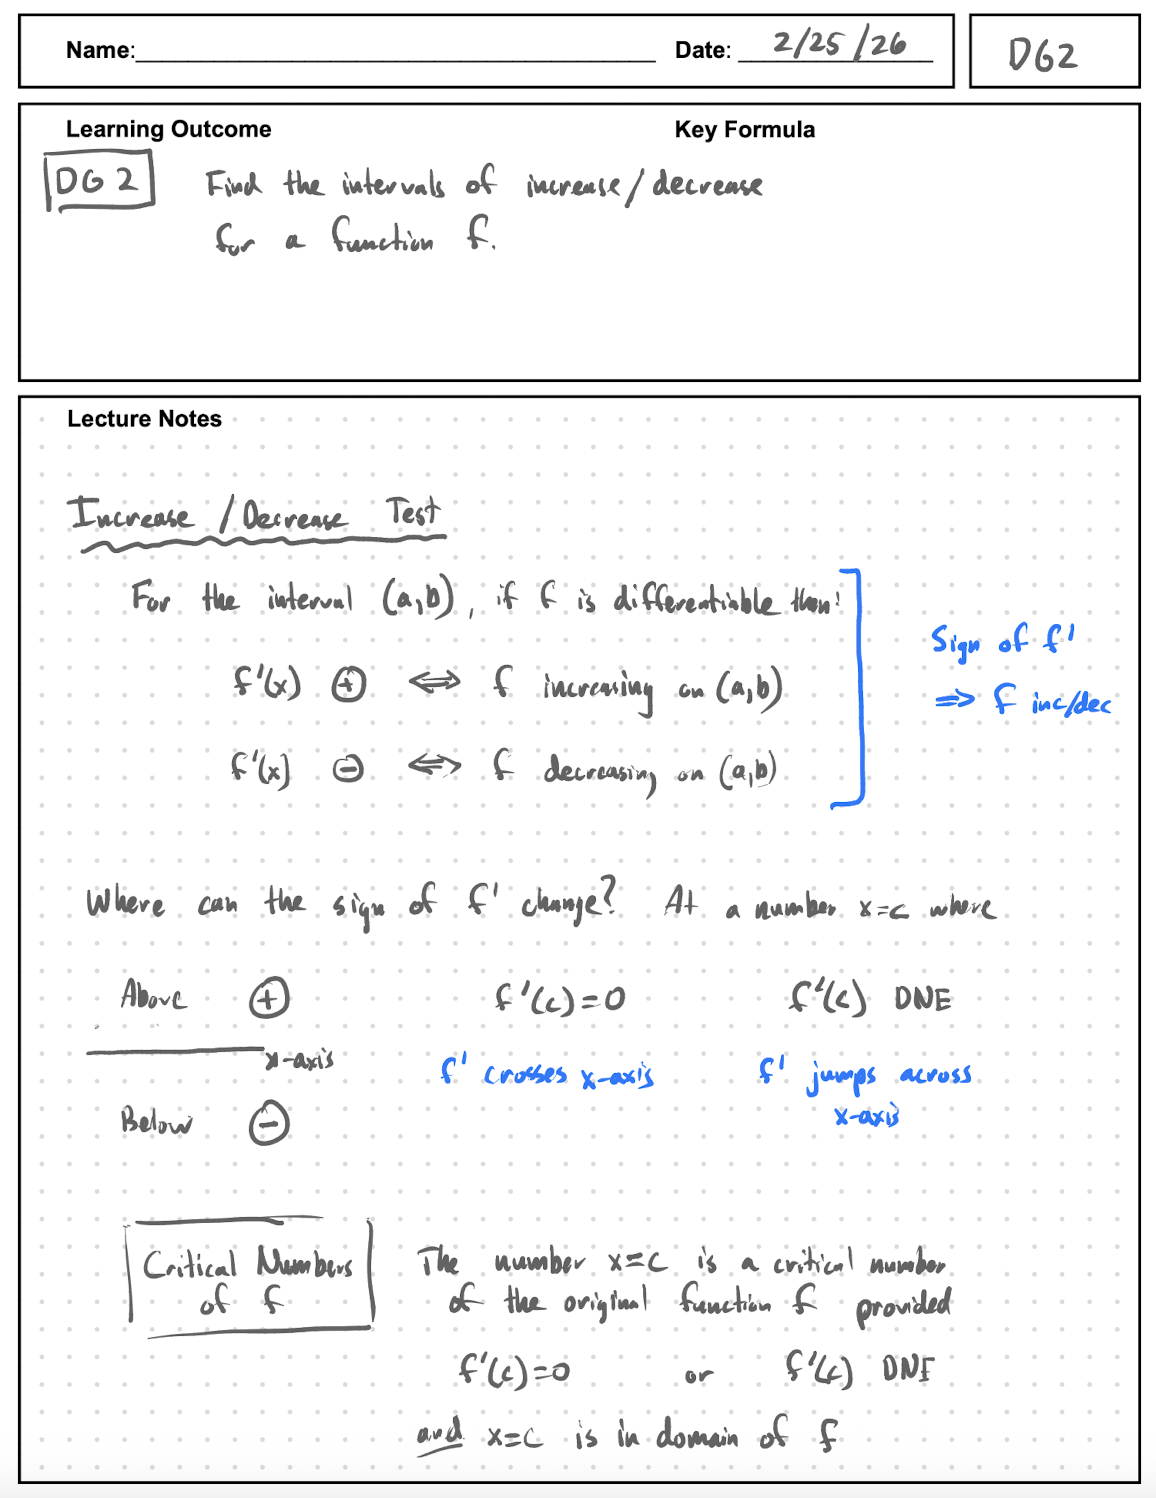 Name: Date: 2/25/26 DG2
Learning Outcome Key Formula
DG 2 Find the intervals of increase/decrease
for a function f.
Lecture Notes
Increase / Decrease Test
For the interval (a,b), if f is differentiable then:
f'(x) ⊕ ⟺ f increasing on (a,b)
f'(x) ⊖ ⟺ f decreasing on (a,b)
Sign of f'
⇒ f inc/dec
Where can the sign of f' change? At a number x=c where
Above ⊕ f'(c)=0 f'(c) DNE
x-axis
f' crosses x-axis f' jumps across
x-axis
Below ⊖
Critical Numbers
of f
The number x=c is a critical number
of the original function f provided
f'(c)=0 or f'(c) DNE
and x=c is in domain of f